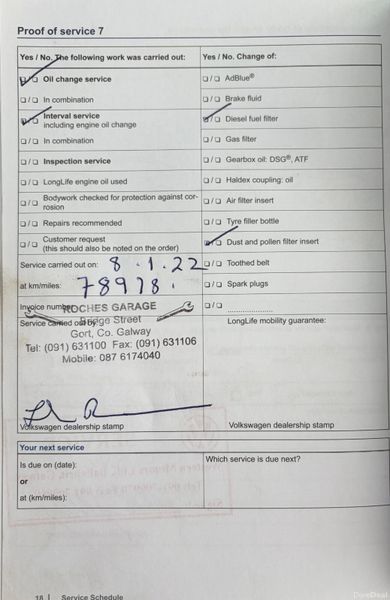 Proof of service 7
Yes / No. The following work was carried out:
Oil change service
In combination
Interval service
including engine oil change
In combination
Inspection service
LongLife engine oil used
Bodywork checked for protection against cor-
rosion
Repairs recommended
Customer request
(this should also be noted on the order)
Service carried out on: 8.1.22
at km/miles: 78978.
Invoice number
ROCHES GARAGE
Service carried out by:
Bridge Street
Gort, Co. Galway
Tel: (091) 631100 Fax: (091) 631106
Mobile: 087 6174040
Volkswagen dealership stamp
Yes / No. Change of:
AdBlue®
Brake fluid
Diesel fuel filter
Gas filter
Gearbox oil: DSG®, ATF
Haldex coupling: oil
Air filter insert
Tyre filler bottle
Dust and pollen filter insert
Toothed belt
Spark plugs
LongLife mobility guarantee:
Volkswagen dealership stamp
Your next service
Is due on (date):
or
at (km/miles):
Which service is due next?
18 | Service Schedule
DoneDeal